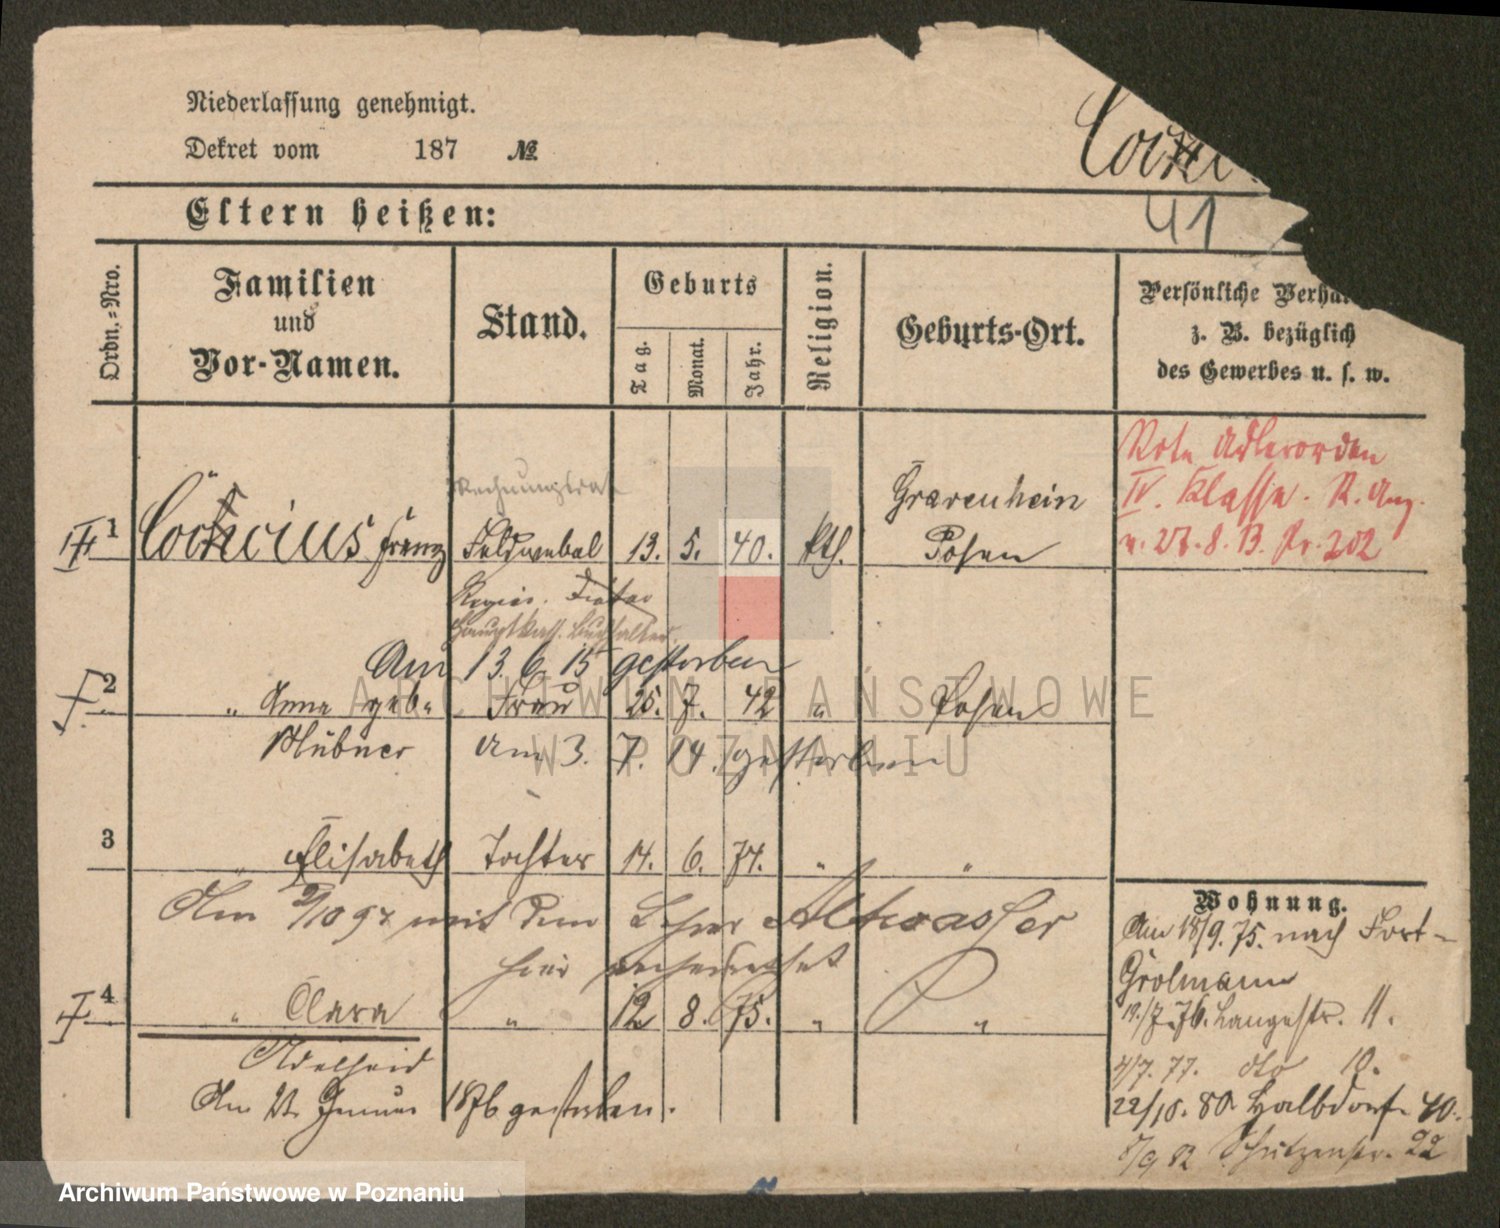 Niederlassung genehmigt.
Dekret vom 187 №
41
Eltern heißen:
Ordn.=Nro.
Familien
und
Vor-Namen.
Stand.
Geburts
Tag.
Monat.
Jahr.
Religion.
Geburts-Ort.
Persönliche
z. B. bezüglich
des Gewerbes u. s. w.
Rote Adlerorden
IV. Klasse. R. Anz.
v. 27.8.13. Nr. 202
Rechnungsrat
1 Franz Feldwebel 13. 5. 40. kth. Gravenhein
Posen
Regier. Diätar
Hauptkass. Buchhalter.
Am 13. 6. 15 gestorben
2 „ Anna geb. Frau 25. 7. 42 „ Posen
Hübner am 3. 7. 14. gestorben
3 „ Elisabeth Tochter 14. 6. 74. „ „
Am 2/10 97 mit dem Lehrer Altwasser
hier verheirathet
4 „ Clara „ 12 8. 75. „ „
Adelheid
Am Januar 1876 gestorben.
Wohnung.
Am 18/9. 75. nach Fort-
Grolmann
19./7. 76. Langestr. 11.
4/7. 77. dto 10.
22/10. 80. Halbdorf. 40.
5/9 82 Schützenstr. 22
ARCHIWUM PAŃSTWOWE
W POZNANIU
Archiwum Państwowe w Poznaniu